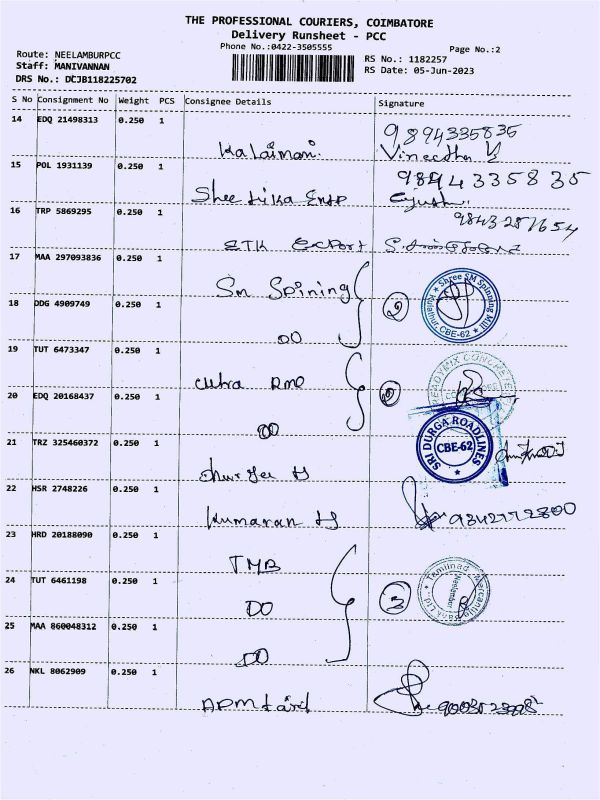 THE PROFESSIONAL COURIERS, COIMBATORE
Delivery Runsheet - PCC
Phone No.:0422-3505555
Page No.:2
Route: NEELAMBURPCC
Staff: MANIVANNAN
DRS No.: DCJB118225702
RS No.: 1182257
RS Date: 05-Jun-2023
S No Consignment No Weight PCS Consignee Details Signature
14 EDQ 21498313 0.250 1
Kalaimani 9894335835
15 POL 1931139 0.250 1
98943 35835
16 TRP 5869295 0.250 1
STK Export
17 MAA 297093836 0.250 1
Sm Spining 2 Shree SM Spinning Mill CBE-62
18 DDG 4909749 0.250 1
DO
19 TUT 6473347 0.250 1
20 EDQ 20168437 0.250 1
DO
21 TRZ 325460372 0.250 1
SRI DURGA ROADLINES
CBE-62
22 HSR 2748226 0.250 1
Kumaran
23 HRD 20188090 0.250 1
TMB
24 TUT 6461198 0.250 1
DO 3 Tamilnad Mercantile Bank Ltd.
Neelambur
25 MAA 860048312 0.250 1
DO
26 NKL 8062909 0.250 1